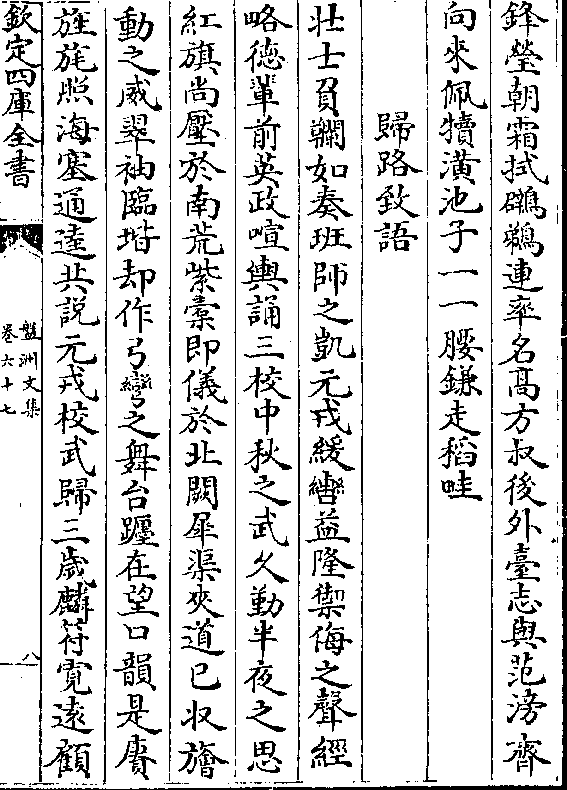 鋒瑩朝霜拭鷿鵜連率名髙方叔後外臺志與范滂齊
向來佩犢潢池子一一腰鎌走稻畦
歸路致語
壮士負韊如奏班師之凱元戎緩轡益隆禦侮之聲經
略徳軰前英政喧輿誦三校中秋之武久勤半夜之思
紅旗尚壓於南荒紫橐即儀於北闕犀渠夾道已収旝
動之威翠袖臨堦却作弓彎之舞台躔在望口韻是賡
旌旄照海塞通逵共説元戎校武歸三歳麟符寛逺顧
欽定四庫全書
盤洲文集
卷六十七
八